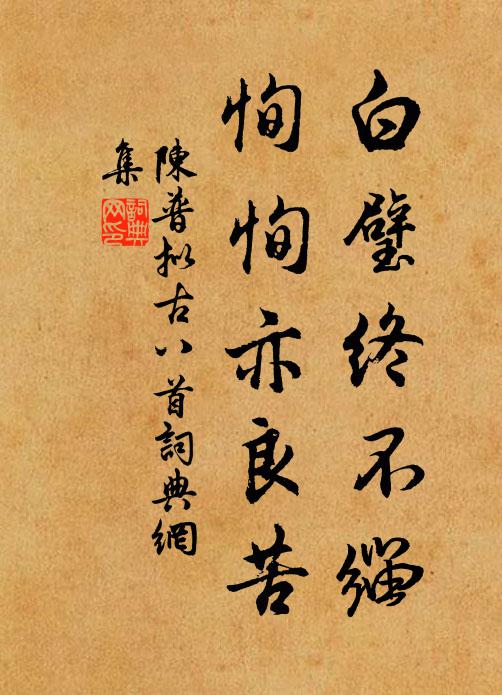 白璧終不緇
恂恂亦良苦
陳普拟古八首詞典網
集
詞典网印